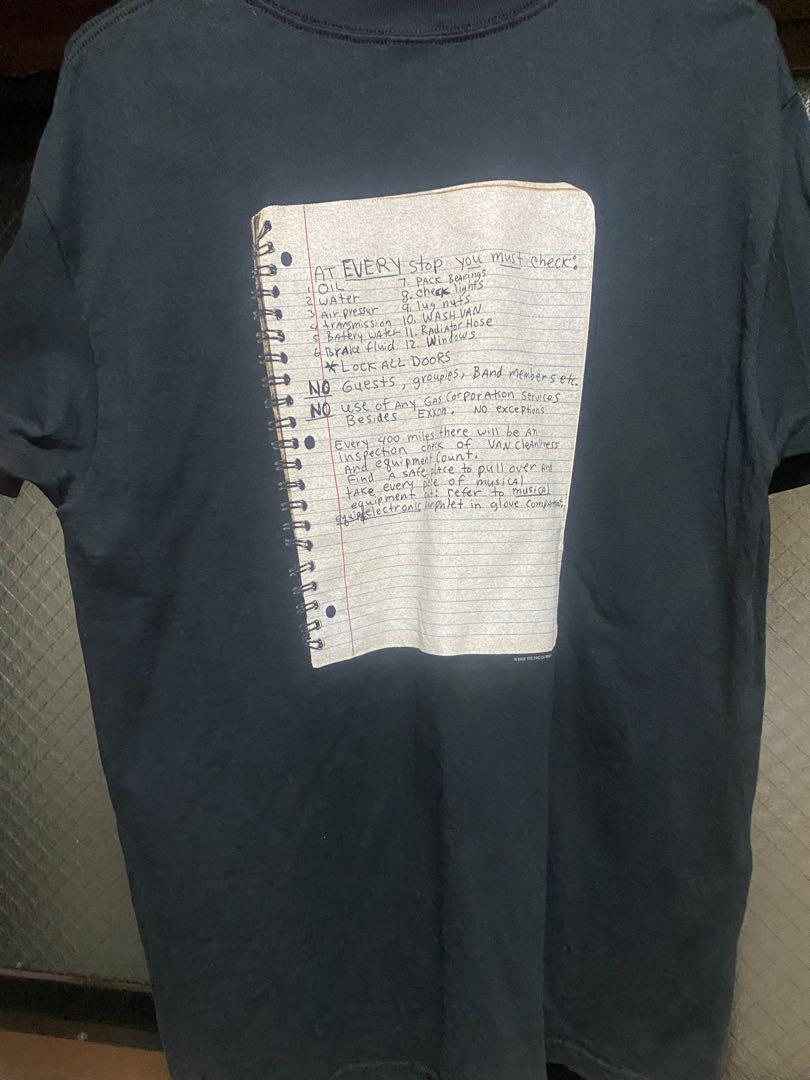 AT EVERY stop you must check:
1 OIL 7. PACK BEARINGS
2 WATER 8. check lights
3 Air pressur 9. lug nuts
4 transmission 10. WASH VAN
5 BATERY WATER 11. RADIATOR Hose
6 BrAke fluid 12. Windows
* LOCK ALL DOORS
NO Guests, groupies, BAnd members etc.
NO use of Any GAS CorporAtion services
Besides EXXON. NO exceptions
Every 400 miles there will be AN
inspection check of VAN cleanliness
And equipment count.
Find A sAfe place to pull over and
tAke every of musicAl
equipment refer to musicAl
electronic in glove